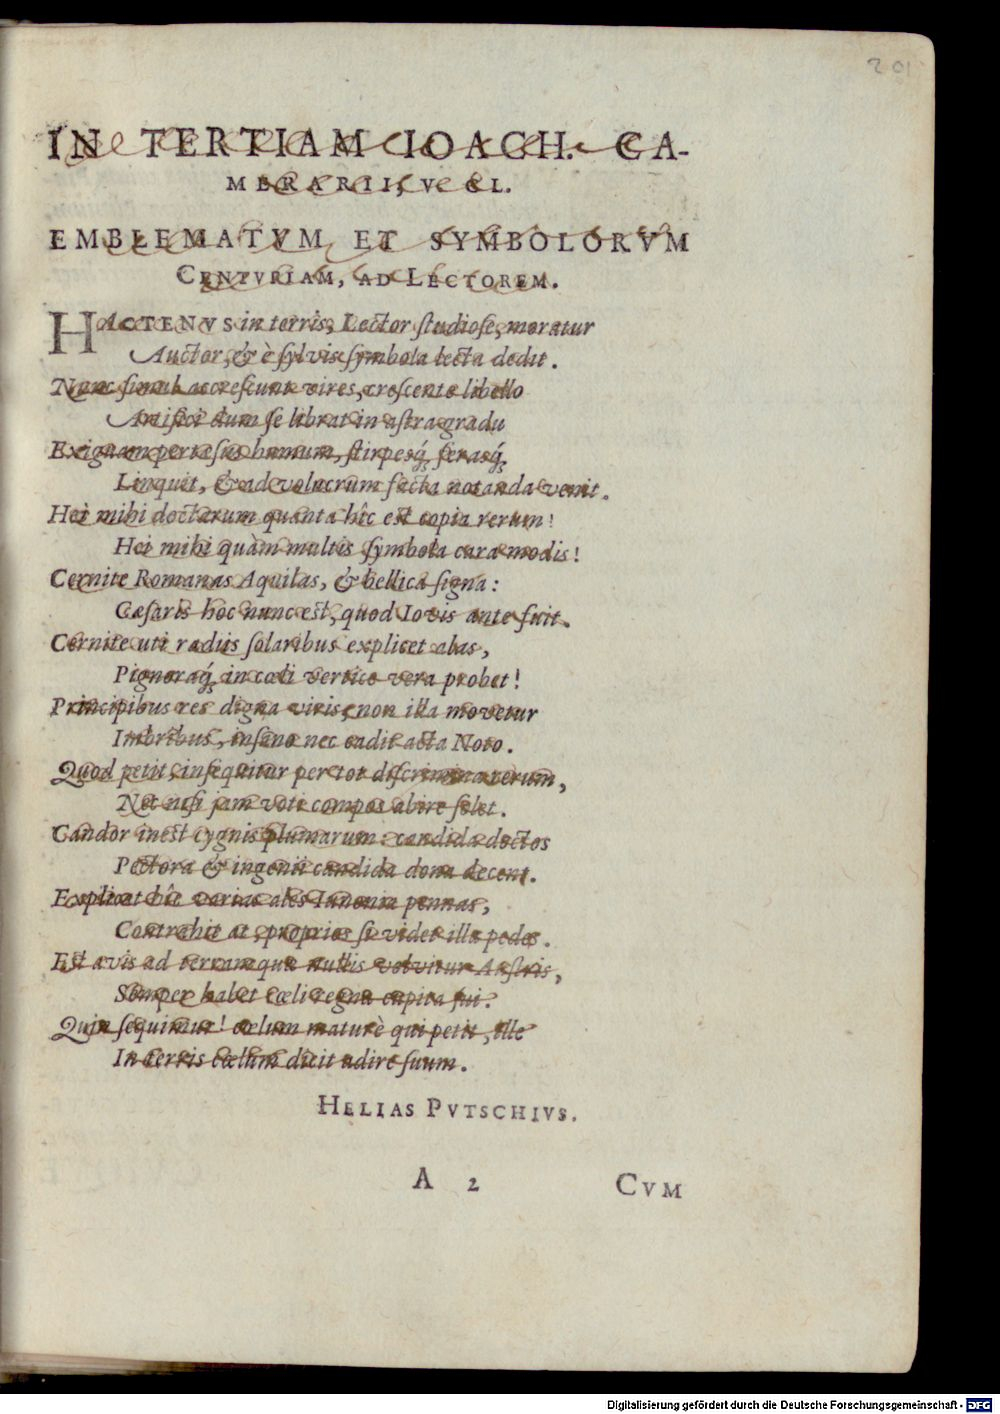 201
IN TERTIAM IOACH. CA-
MERARII, V. CL.
EMBLEMATVM ET SYMBOLORVM
CENTVRIAM, AD LECTOREM.
HACTENVS in terris, Lector studiose, moratur
Auctor, & è sylvis symbola lecta dedit.
Nunc simul accrescunt vires, crescente libello
Artifici dum se librat in astra gradu
Exiguam pertæsus humum, stirpesq́; ferasq́;
Linquit, & ad volucrum facta notanda venit.
Hei mihi doctarum quanta hîc est copia rerum!
Hei mihi quàm multis symbola cara modis!
Cernite Romanas Aquilas, & bellica signa:
Cæsaris hoc nunc est, quod Iovis ante fuit.
Cernite uti radiis solaribus explicet alas,
Pignoraq́; in cœli vertice vera probet!
Principibus res digna viris, non illa movetur
Imbribus, insano nec cadit acta Noto.
Quod petit, insequitur per tot discrimina rerum,
Nec nisi jam voti compos abire solet.
Candor inest cygnis plumarum: candida doctos
Pectora & ingenii candida dona decent.
Explicat hîc varias ales Iunonia pennas,
Contrahit at, proprios si videt illa pedes.
Est avis ad terram quæ nullis volvitur Austris,
Semper habet cœli regna cupita sui.
Quin sequimur! cœlum maturè qui petit, ille
In terris cœlum dicit adire suum.
HELIAS PVTSCHIVS.
A 2 CVM
Digitalisierung gefördert durch die Deutsche Forschungsgemeinschaft - DFG